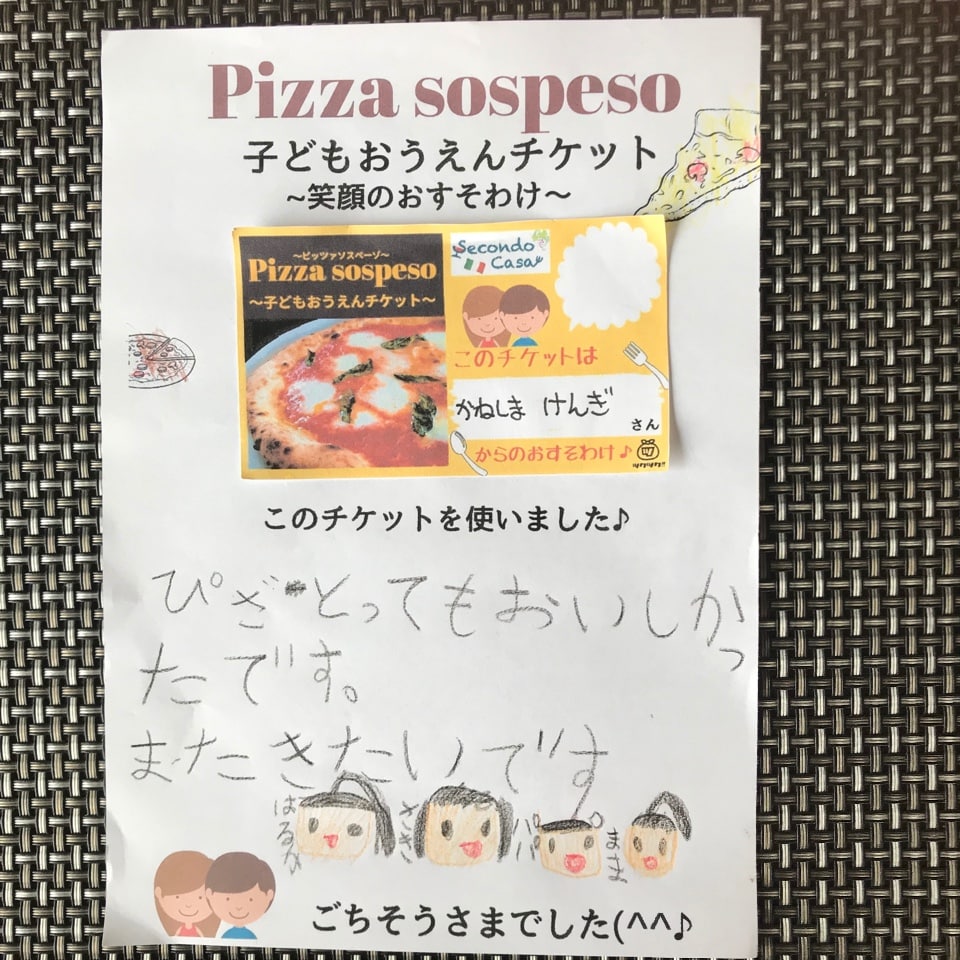 Pizza sospeso
子どもおうえんチケット
~笑顔のおすそわけ~
~ピッツァソスペーゾ~
Pizza sospeso
~子どもおうえんチケット~
Secondo
Casa
このチケットは
かねしま けんぎ
さん
からのおすそわけ♪
このチケットを使いました♪
ぴざとってもおいしかっ
たです。
またきたいです。
はるか
さき
パパ
まま
ごちそうさまでした(^^♪